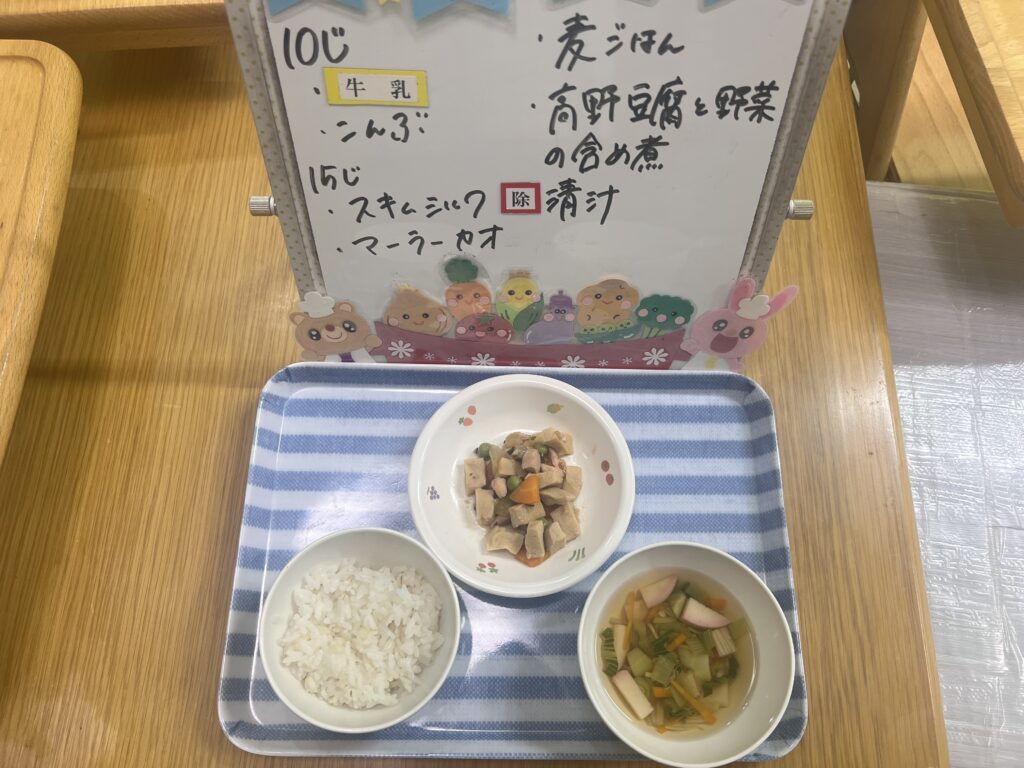 10じ
・牛乳
・こんぶ
15じ
・スキムミルク
・マーラーカオ
・麦ごはん
・高野豆腐と野菜
の含め煮
除 清汁